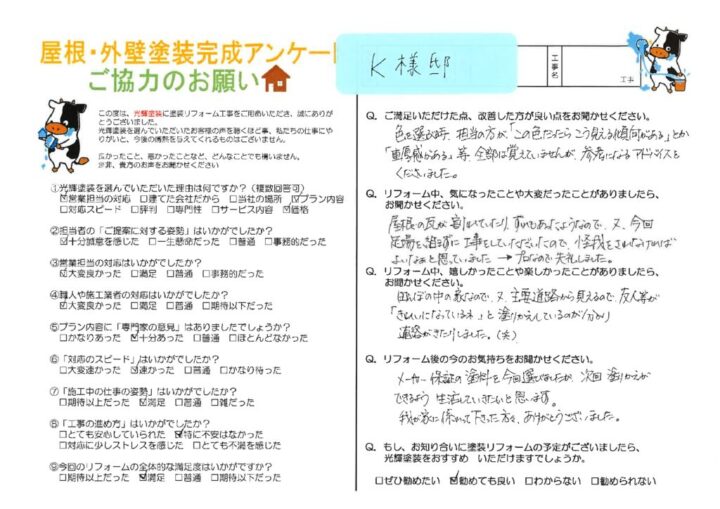 屋根・外壁塗装完成アンケート
ご協力のお願い
K様邸
工事名
工事
この度は、光輝塗装に塗装リフォーム工事をご用命いただき、誠にありが
とうございました。
光輝塗装を選んでいただいたお客様の声を聴くほど事、私たちの仕事にや
りがいと、今後の情熱を与えてくれるものはございません。
良かったこと、悪かったことなど、どんなことでも構いません。
※是非、貴方のお声をお聞かせください
①光輝塗装を選んでいただいた理由は何ですか?(複数回答可)
☑営業担当の対応 □建てた会社だから □当社の場所 ☑プラン内容
□対応スピード □評判 □専門性 □サービス内容 ☑価格
②担当者の「ご提案に対する姿勢」はいかがでしたか?
☑十分誠意を感じた □一生懸命だった □普通 □事務的だった
③営業担当の対応はいかがでしたか?
☑大変良かった □満足 □普通 □事務的だった
④職人や施工業者の対応はいかがでしたか?
☑大変良かった □満足 □普通 □期待以下だった
⑤プラン内容に「専門家の意見」はありましたでしょうか?
□かなりあった ☑十分あった □普通 □ほとんどなかった
⑥「対応のスピード」はいかがでしたか?
□大変速かった ☑速かった □普通 □かなり待った
⑦「施工中の仕事の姿勢」はいかがでしたか?
□期待以上だった ☑満足 □普通 □雑だった
⑧「工事の進め方」はいかがでしたか?
□とても安心していられた ☑特に不安はなかった
□対応に少しストレスを感じた □とても不満を感じた
⑨今回のリフォームの全体的な満足度はいかがですか?
□期待以上だった ☑満足 □普通 □期待以下だった
Q. ご満足いただけた点、改善した方が良い点をお聞かせください。
色を選ぶ時、担当の方が「この色だったらこう見える傾向がある」とか
「重厚感がある」等 全部は覚えていませんが、参考になるアドバイスを
くださいました。
Q. リフォーム中、気になったことや大変だったことがありましたら、
お聞かせください。
屋根の瓦が
ようなので、又、今回
足場を組まずに工事をしていただいたので、怪我をされなければ
よいなぁと思っていました → プロなので失礼しました。
Q. リフォーム中、嬉しかったことや楽しかったことがありましたら、
お聞かせください。
田んぼの中の家なので、又、主要道路から見えるので、友人等が
「きれいになっているネ」と塗りかえしているのが分かり
連絡がきたりしました。(笑)
Q. リフォーム後の今のお気持ちをお聞かせください。
メーカー保証の塗料を今回選びましたが、次回塗りかえが
できるよう生活していきたいと思います。
我が家に係わって下さった方々、ありがとうございました。
Q. もし、お知り合いに塗装リフォームの予定がございましたら、
光輝塗装をおすすめ いただけますでしょうか。
□ぜひ勧めたい ☑勧めても良い □わからない □勧められない